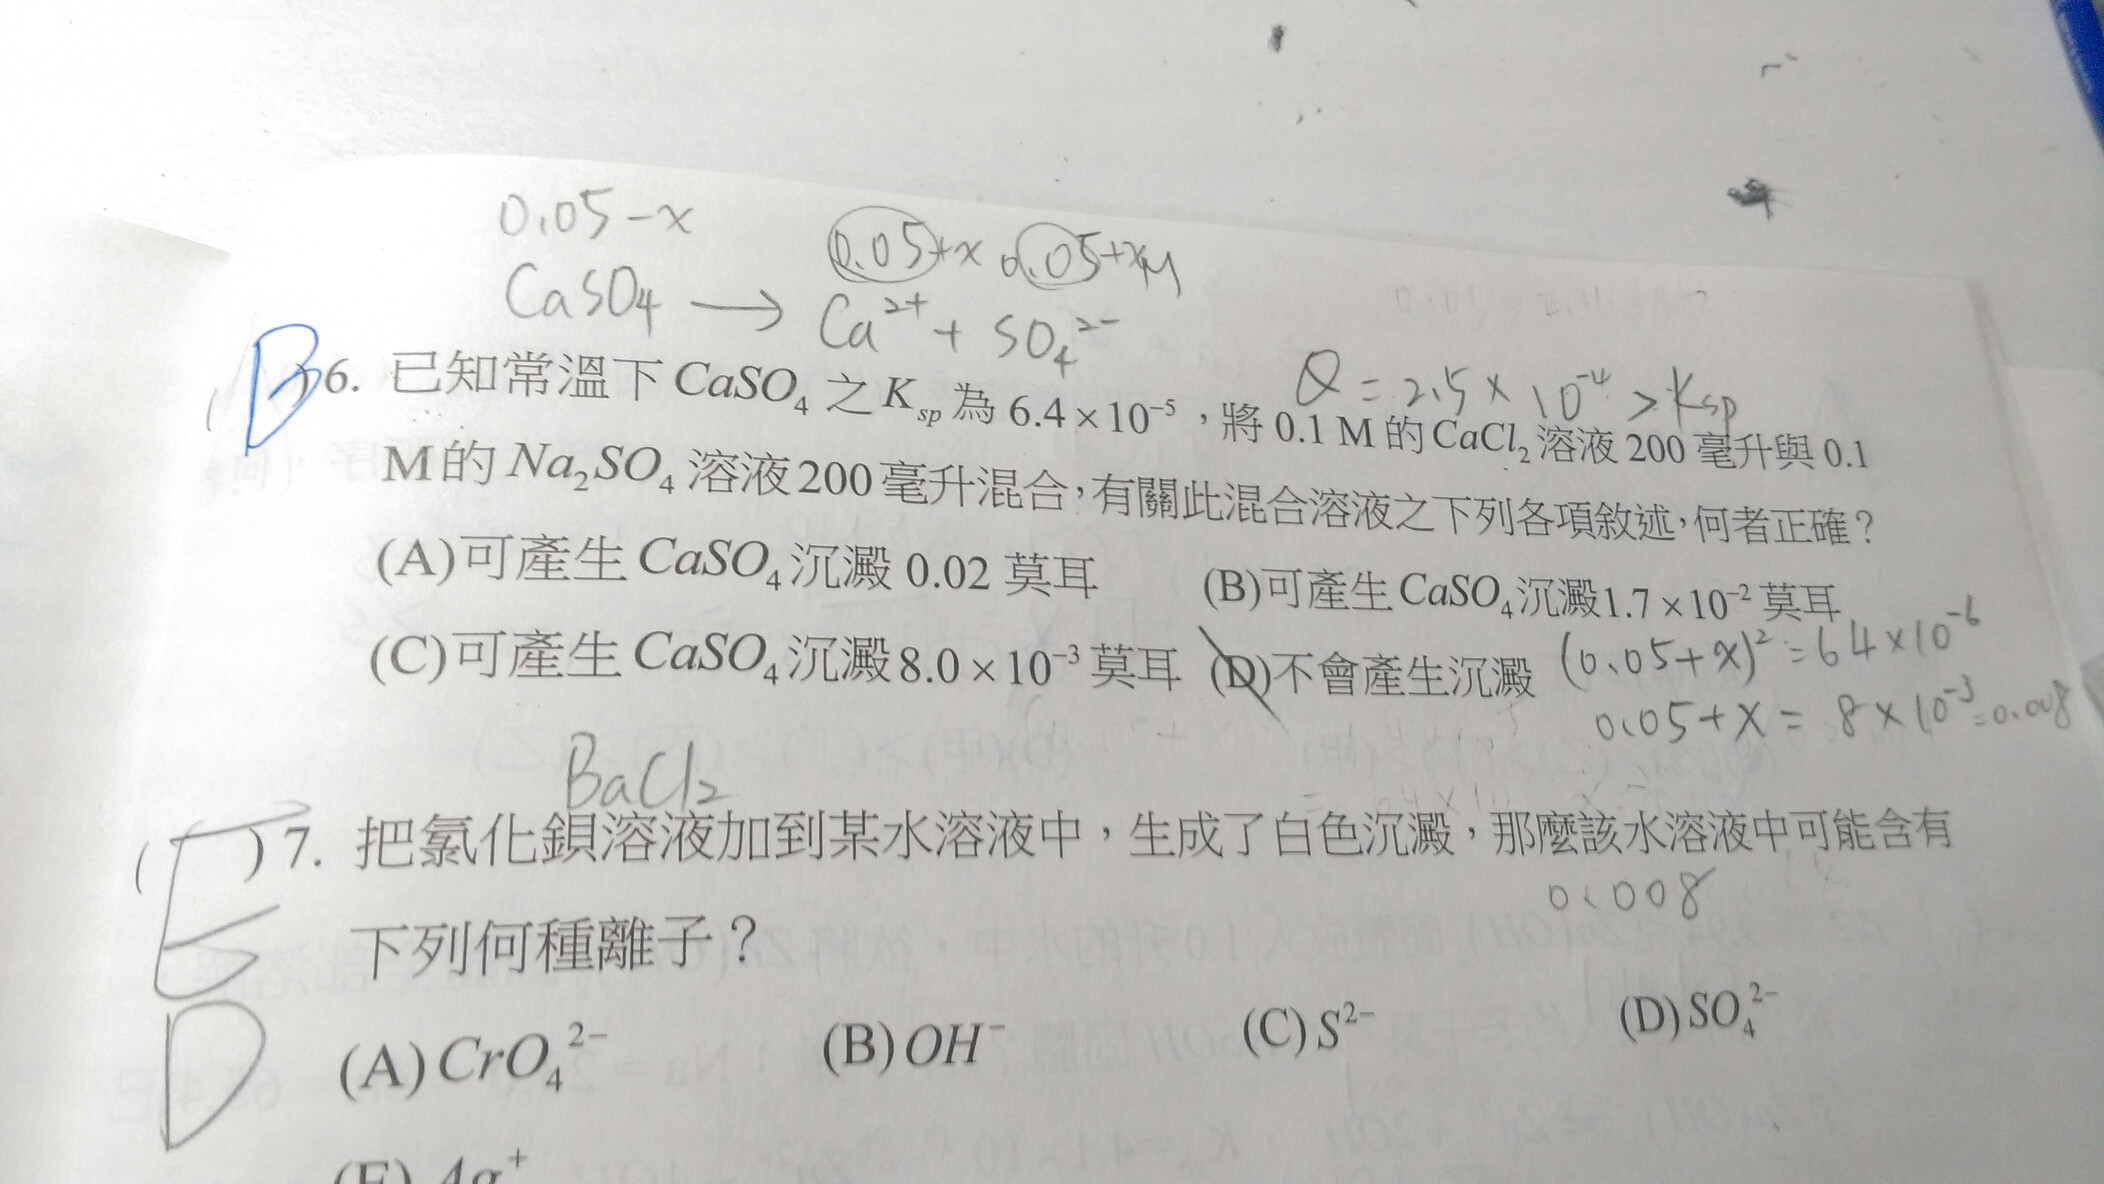 0.05-x
0.05+x 0.05+xM
CaSO4 → Ca²⁺ + SO4²⁻
Q = 2.5 × 10⁻⁴ > Ksp
B )6. 已知常溫下 CaSO₄ 之 Ksp 為 6.4×10⁻⁵，將 0.1 M 的 CaCl₂ 溶液 200 毫升與 0.1
M 的 Na₂SO₄ 溶液 200 毫升混合，有關此混合溶液之下列各項敘述，何者正確？
(A)可產生 CaSO₄ 沉澱 0.02 莫耳 (B)可產生 CaSO₄ 沉澱1.7×10⁻² 莫耳
(C)可產生 CaSO₄ 沉澱 8.0×10⁻³ 莫耳 (D)不會產生沉澱
(0.05+x)² = 64×10⁻⁶
0.05+x = 8×10⁻³ = 0.008
BaCl2
( E )7. 把氯化鋇溶液加到某水溶液中，生成了白色沉澱，那麼該水溶液中可能含有
0.008
下列何種離子？
D
(A) CrO₄²⁻ (B) OH⁻ (C) S²⁻ (D) SO₄²⁻
(E) Ag⁺